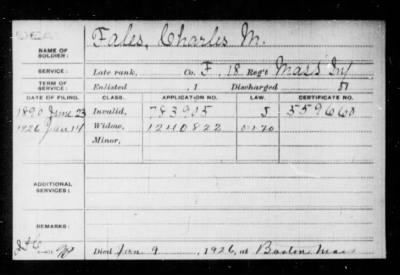 DEAD
NAME OF SOLDIER: Fales, Charles M.
SERVICE: Late rank, Co. F, 18 Reg't Mass Inf
TERM OF SERVICE: Enlisted , 1 Discharged
DATE OF FILING. CLASS. APPLICATION NO. LAW. CERTIFICATE NO.
1890 June 23 Invalid, 783905 J 559660
1926 Jan 14 Widow, 1240822
Minor,
ADDITIONAL SERVICES:
REMARKS:
Died Jan 9 , 1926, at Boston Mass